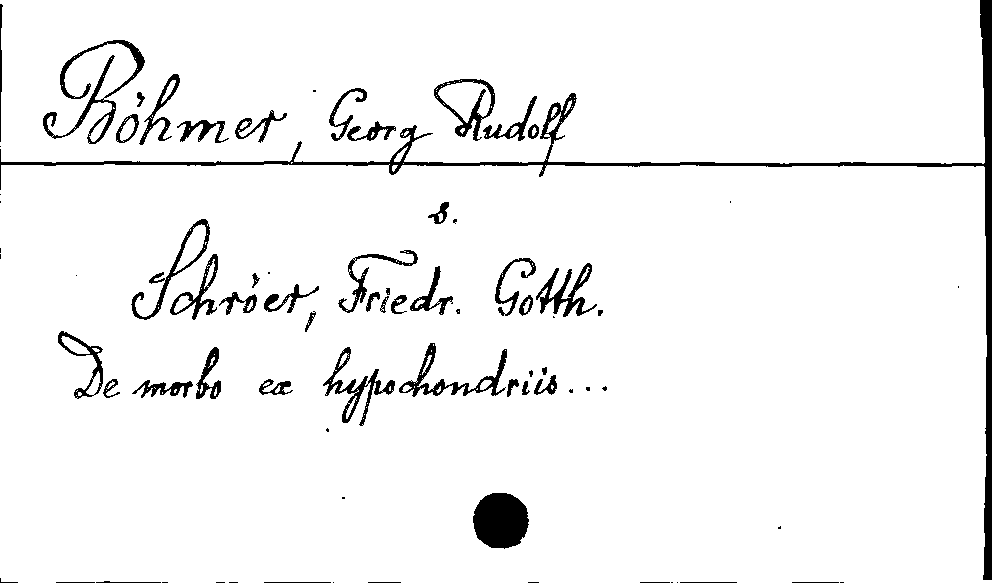 Böhmer, Georg Rudolf
s.
Schröer, Friedr. Gotth.
De morbo ex hypochondriis...